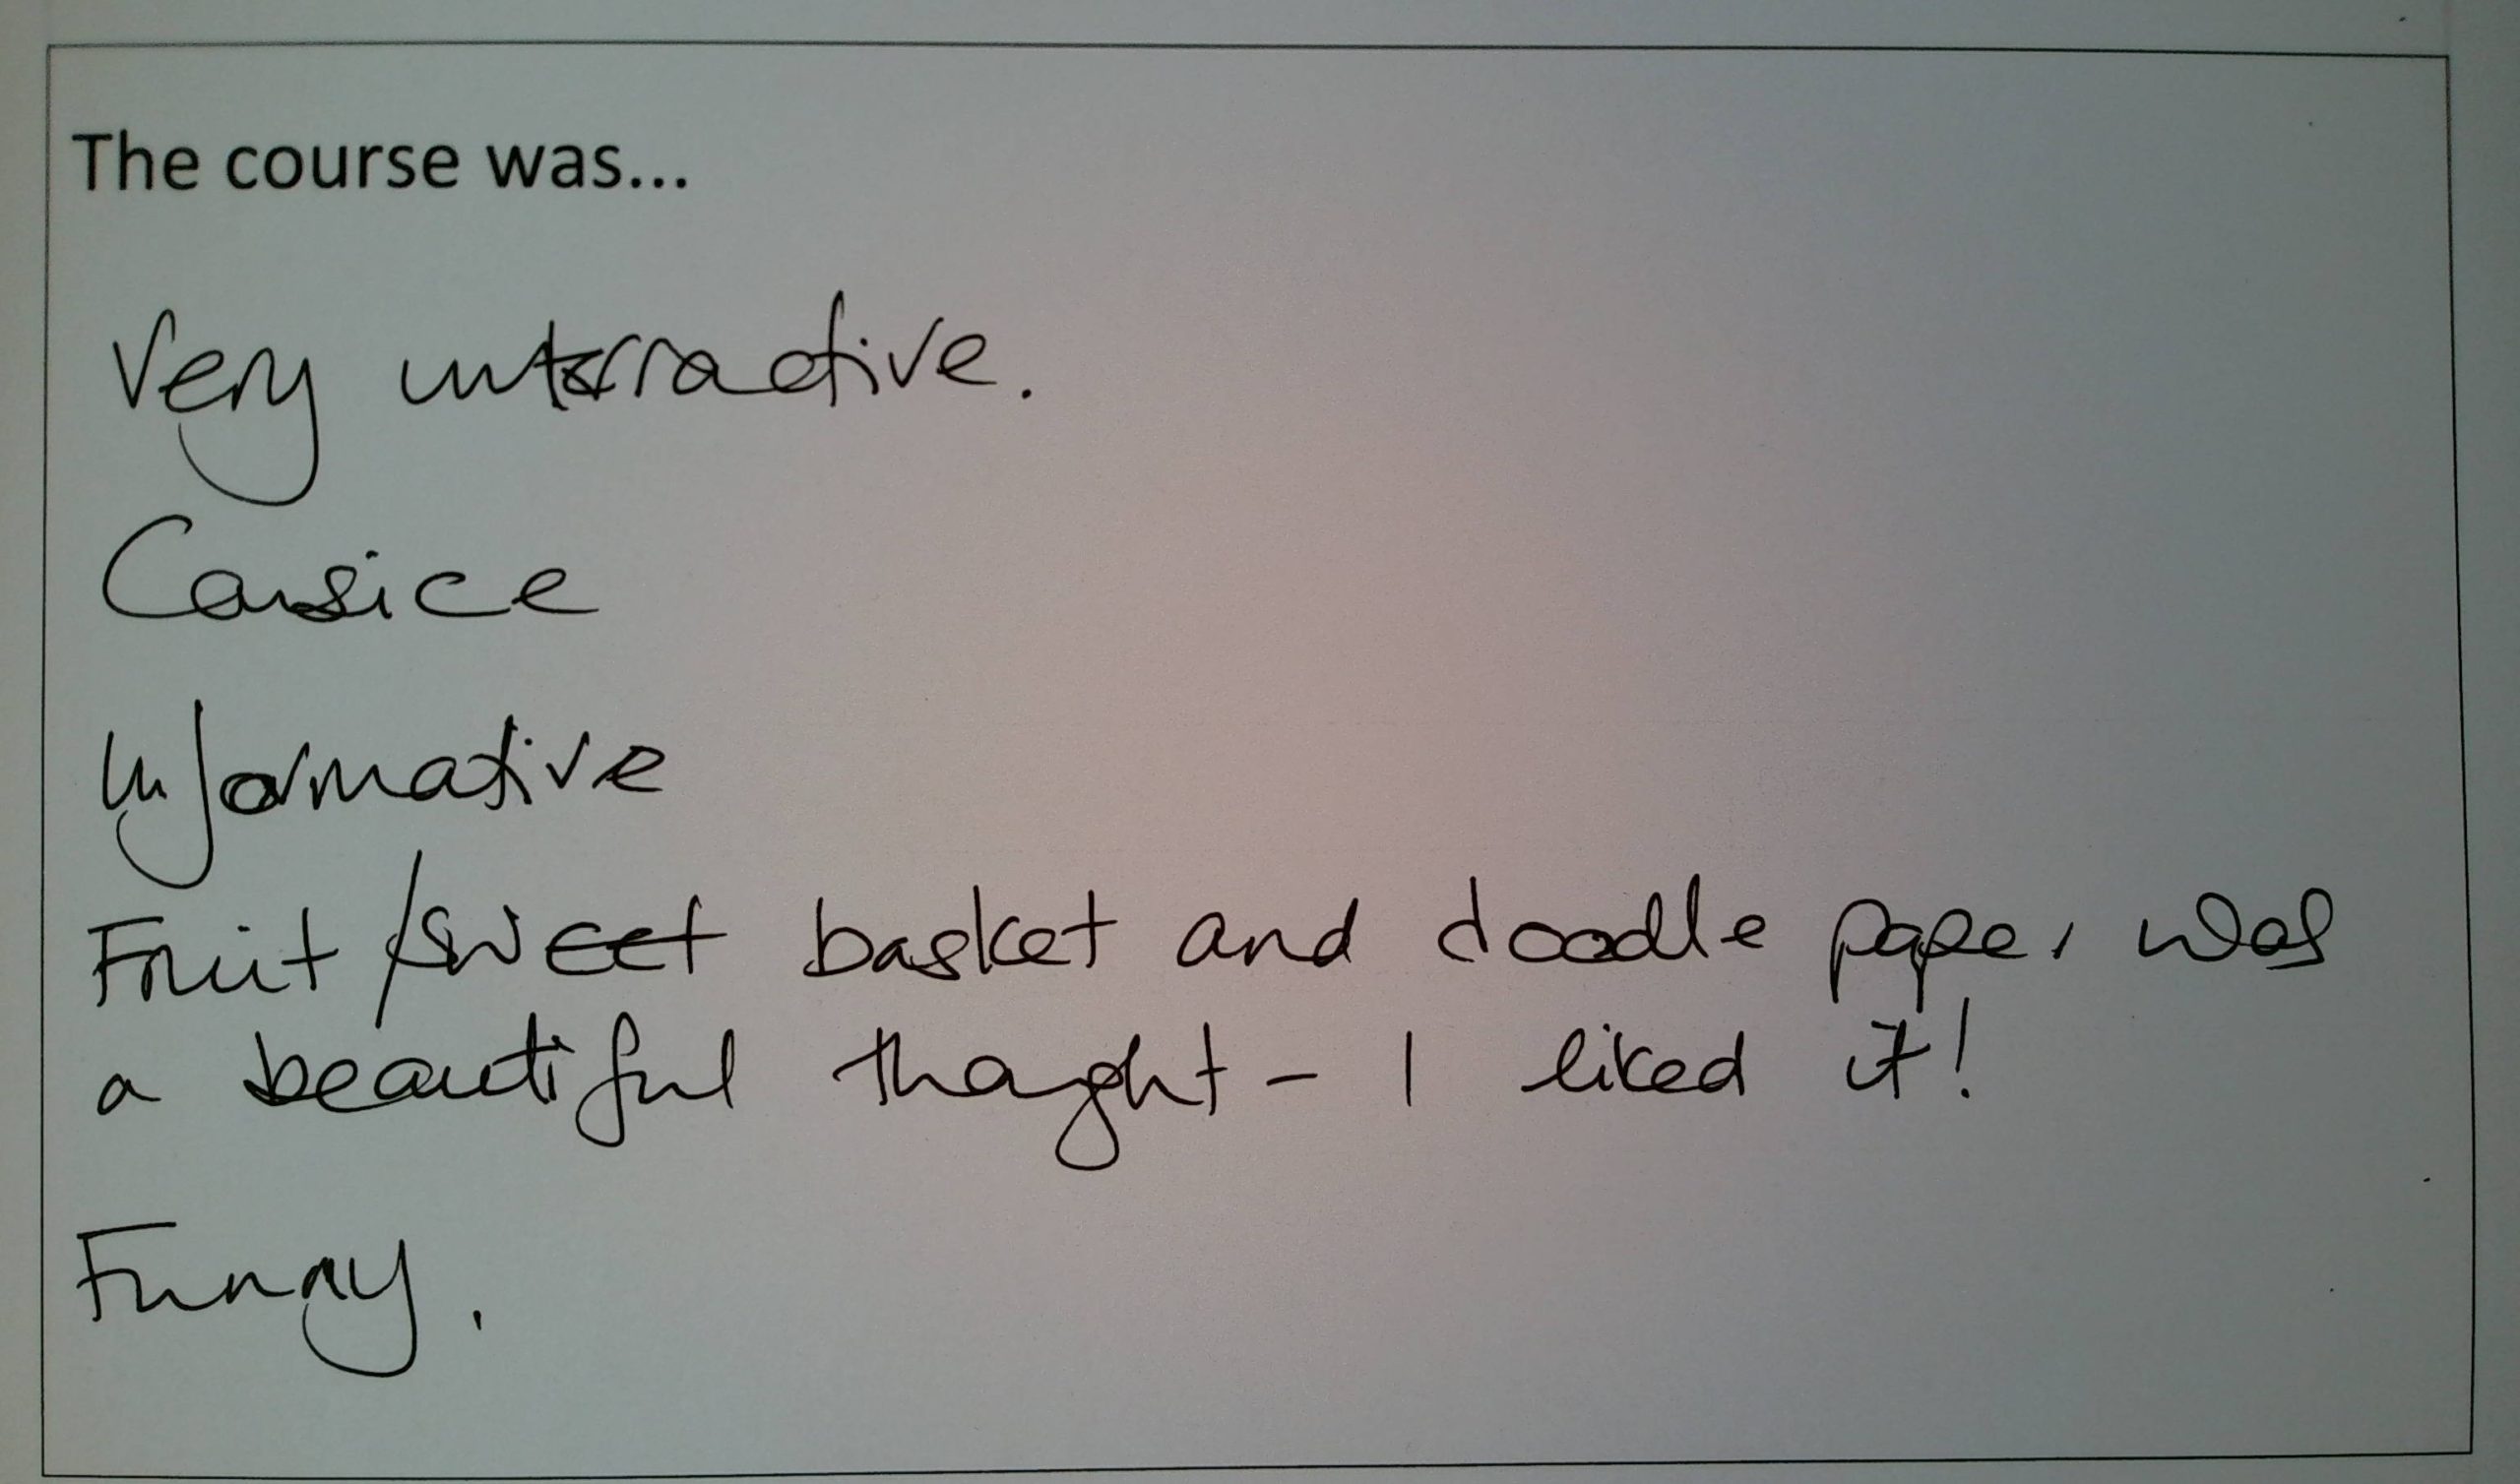 The course was...
Very interractive.
Consice
Informative
Fruit/sweet basket and doodle paper was
a beautiful thought - I liked it!
Funny.